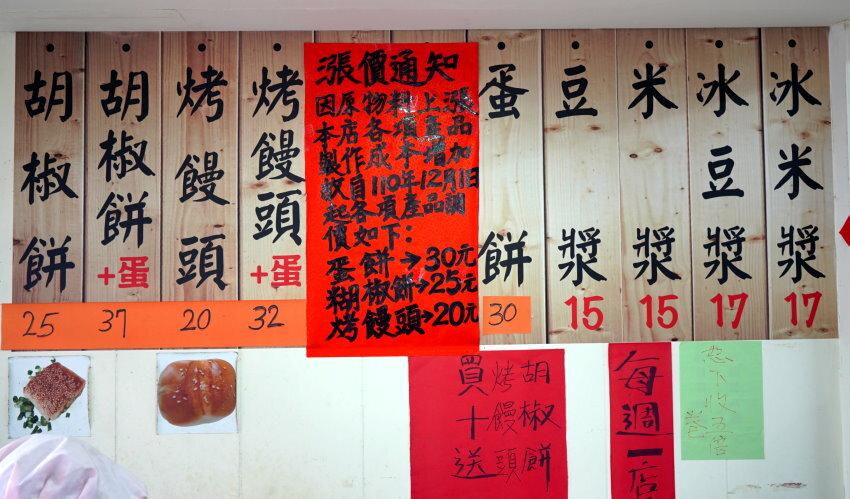 胡椒餅
25
胡椒餅
+蛋
37
烤饅頭
20
烤饅頭
+蛋
32
漲價通知
因原物料上漲
本店各項產品
製作成本增加
故自110年12月1日
起各項產品調
價如下:
蛋餅→30元
糊椒餅→25元
烤饅頭→20元
蛋餅
30
豆漿
15
米漿
15
冰豆漿
17
冰米漿
17
胡椒餅
烤饅頭
買十送
每週一店